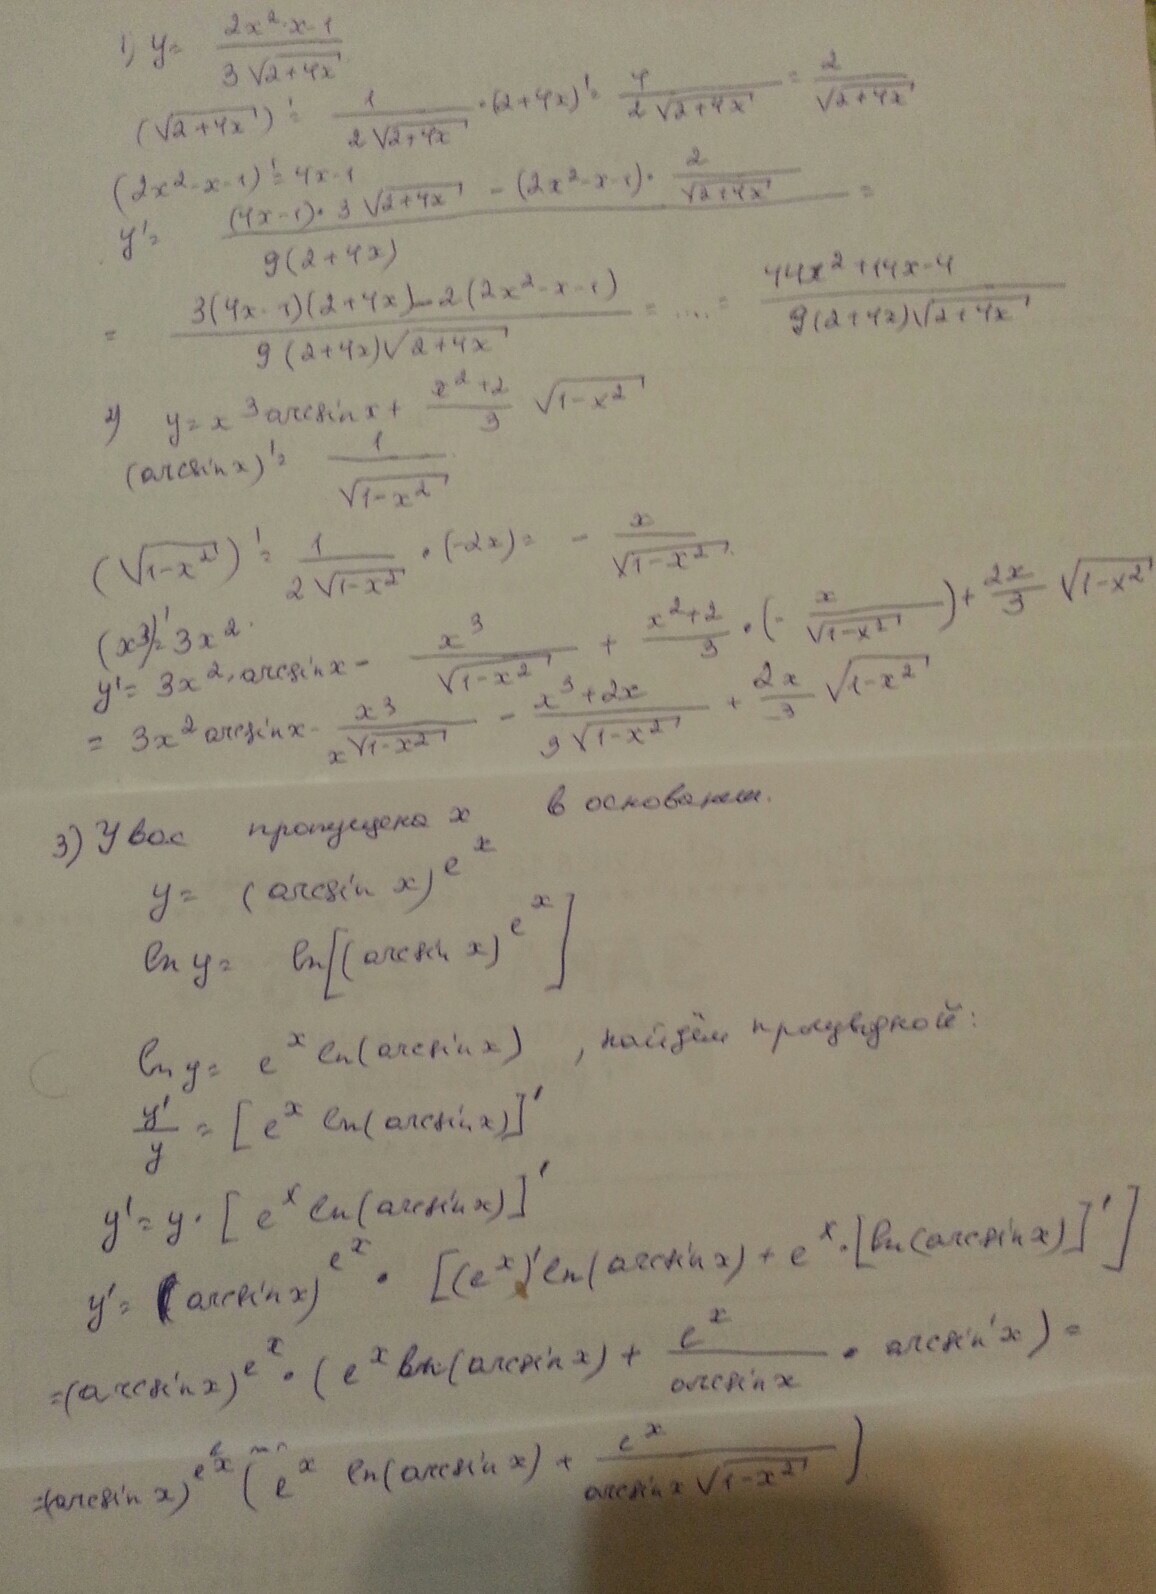 1) y = (2x²-x-1)/(3√(2+4x))
(√(2+4x))' = 1/(2√(2+4x)) · (2+4x)' = 4/(2√(2+4x)) = 2/√(2+4x)
(2x²-x-1)' = 4x-1
y' = ((4x-1)·3√(2+4x) - (2x²-x-1)·2/√(2+4x))/(9(2+4x)) =
= (3(4x-1)(2+4x)-2(2x²-x-1))/(9(2+4x)√(2+4x)) = .... = (44x²+14x-4)/(9(2+4x)√(2+4x))
2) y = x³arcsinx + (x²+2)/3 √(1-x²)
(arcsinx)' = 1/√(1-x²)
(√(1-x²))' = 1/(2√(1-x²)) · (-2x) = - x/√(1-x²)
(x³)' = 3x².
y' = 3x²·arcsinx - x³/√(1-x²) + (x²+2)/3 · (- x/√(1-x²)) + 2x/3 √(1-x²)
= 3x²arcsinx - x³/(x√(1-x²)) - (x³+2x)/(3√(1-x²)) + 2x/3 √(1-x²)
3) У вас пропущена x в основании.
y = (arcsin x)^(e^x)
ln y = ln[(arcsin x)^(e^x)]
ln y = e^x ln(arcsinx) , найдём
y'/y = [e^x ln(arcsinx)]'
y' = y · [e^x ln(arcsinx)]'
y' = (arcsinx)^(e^x) · [(e^x)'ln(arcsinx) + e^x·[ln(arcsinx)]']
=(arcsinx)^(e^x) · (e^x ln(arcsinx) + e^x/arcsinx · arcsin'x) =
=(arcsinx)^(e^x) (e^x ln(arcsinx) + e^x/(arcsinx√(1-x²)))